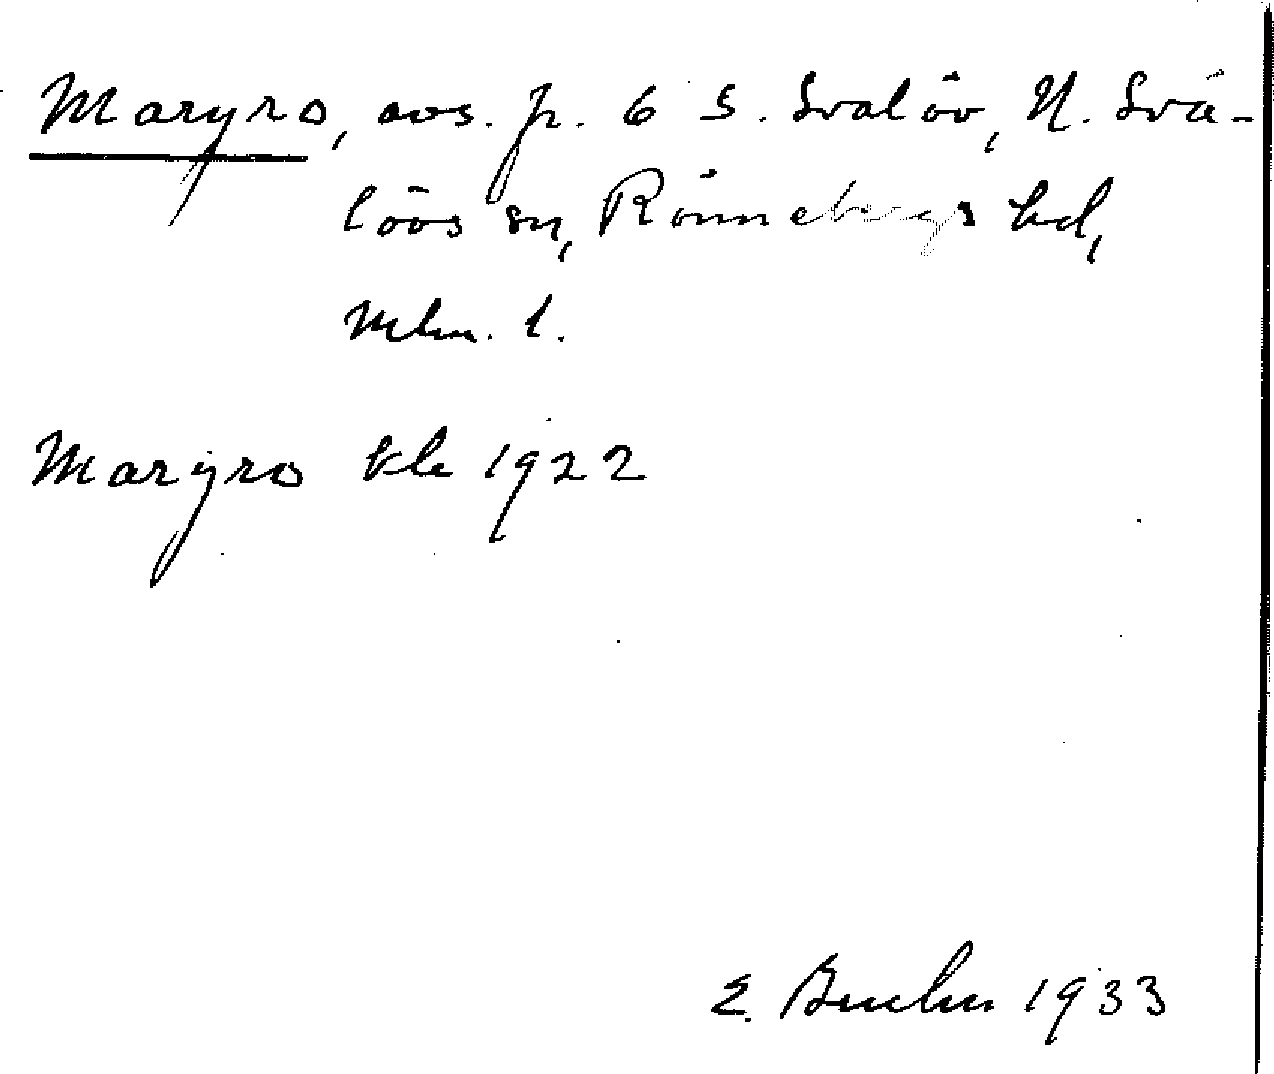 Maryro, avs. fr. 6 S. Svalöv, N. Sva-
lövs sn, Rönnebergs hd,
Mlm. l.
Maryro tle 1922
E. 1933